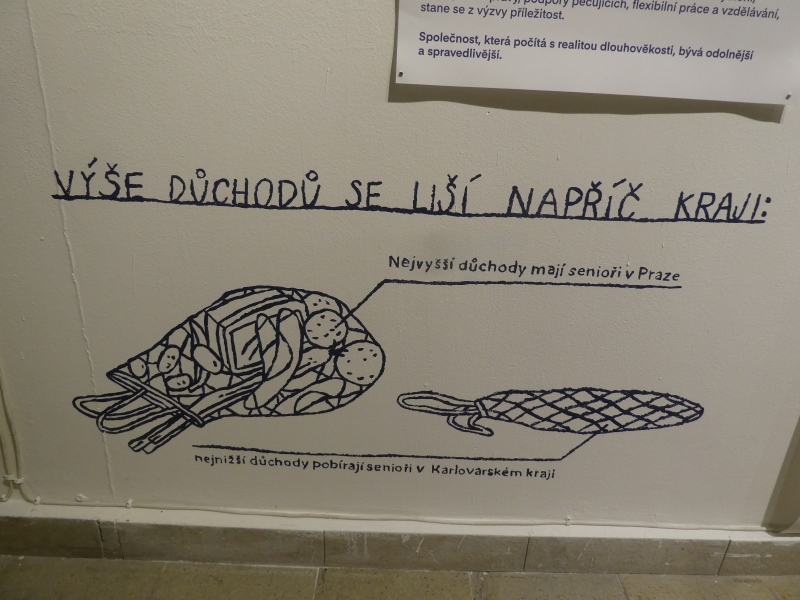 podpory pečujících, flexibilní práce a vzdělávání,
stane se z výzvy příležitost.
Společnost, která počítá s realitou dlouhověkosti, bývá odolnější
a spravedlivější.
VÝŠE DŮCHODŮ SE LIŠÍ NAPŘÍČ KRAJI:
Nejvyšší důchody mají senioři v Praze
nejnižší důchody pobírají senioři v Karlovarském kraji